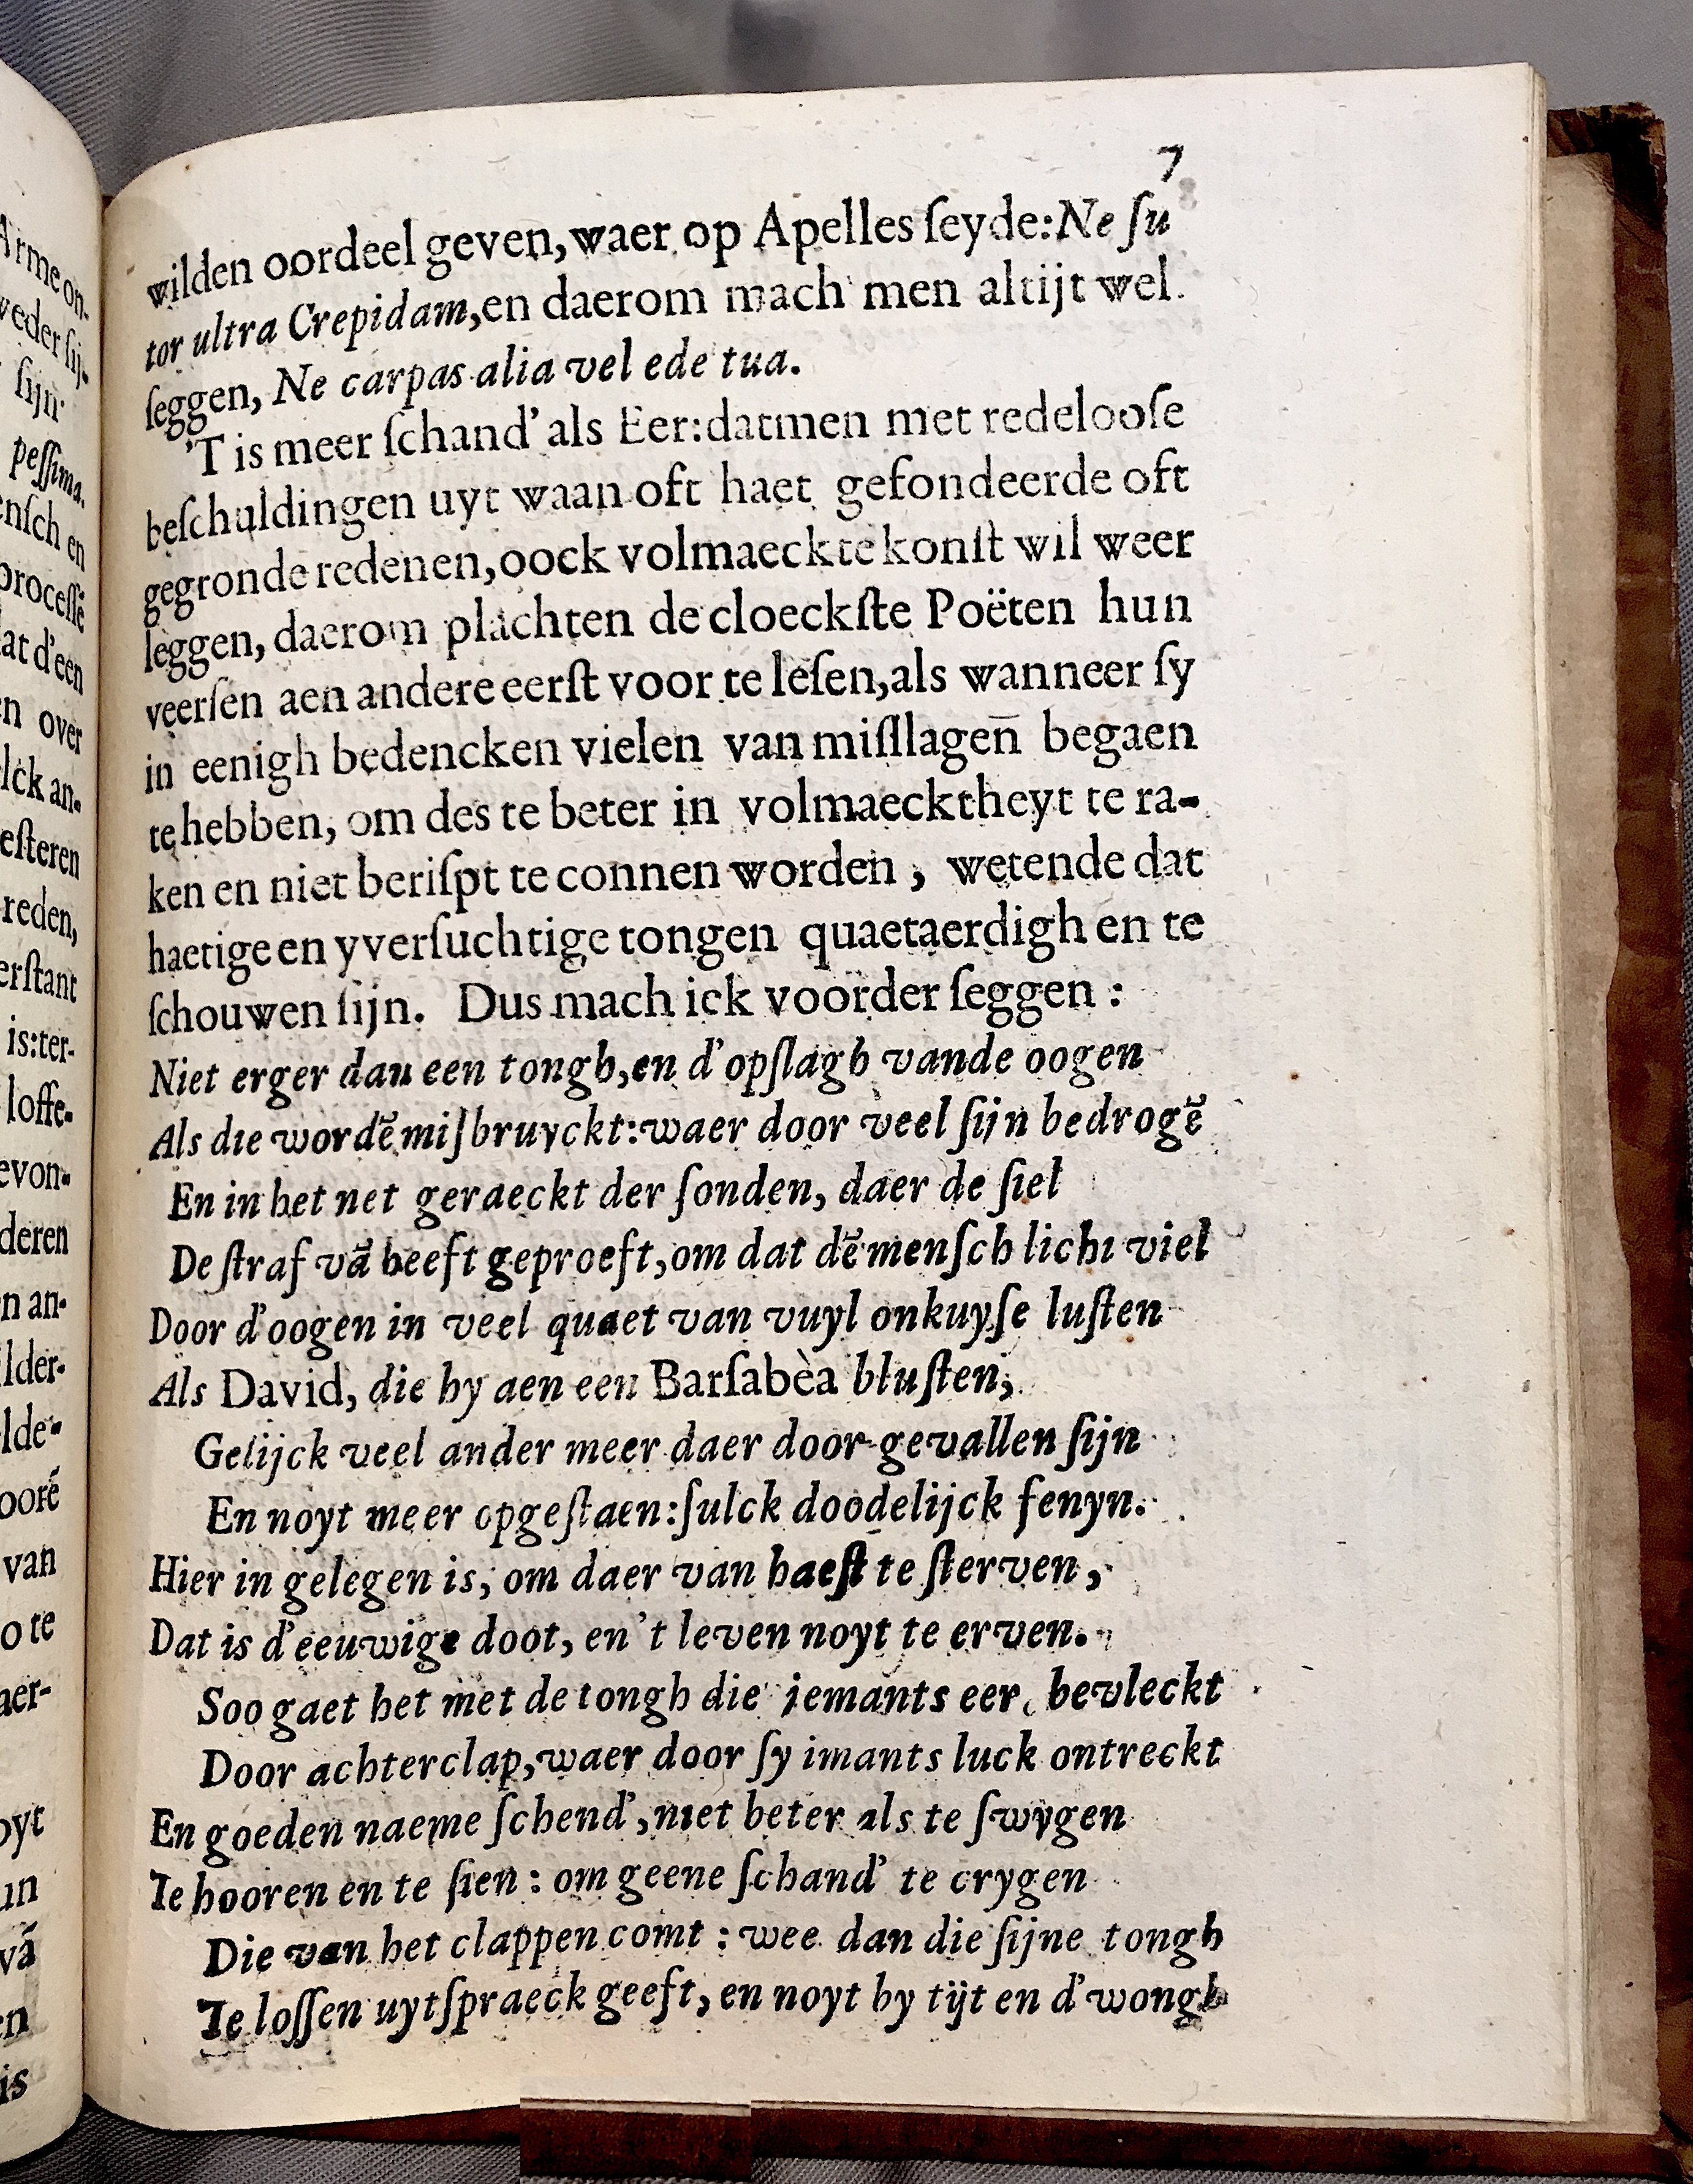 7
wilden oordeel geven, waer op Apelles ſeyde: Ne ſu
tor ultra Crepidam, en daerom mach men altijt wel
ſeggen, Ne carpas alia vel ede tua.
'T is meer ſchand' als Eer: datmen met redelooſe
beſchuldingen uyt waan oft haet gefondeerde oft
gegronde redenen, oock volmaeckte konſt wil weer
leggen, daerom plachten de cloeckſte Poëten hun
veerſen aen andere eerſt voor te leſen, als wanneer ſy
in eenigh bedencken vielen van miſſlagen̄ begaen
te hebben, om des te beter in volmaecktheyt te ra-
ken en niet beriſpt te connen worden, wetende dat
haetige en yverſuchtige tongen quaetaerdigh en te
ſchouwen ſijn. Dus mach ick voorder ſeggen:
Niet erger dan een tongh, en d'opſlagh vande oogen
Als die wordē miſbruyckt: waer door veel ſijn bedrogē
En in het net geraeckt der ſonden, daer de ſiel
De ſtraf vā heeft geproeft, om dat dē menſch licht viel
Door d'oogen in veel quaet van vuyl onkuyſe luſten
Als David, die hy aen een Barſabèa bluſten;
Gelijck veel ander meer daer door gevallen ſijn
En noyt meer opgeſtaen: ſulck doodelijck fenyn.
Hier in gelegen is, om daer van haeſt te ſterven,
Dat is d'eeuwige doot, en 't leven noyt te erven.
Soo gaet het met de tongh die iemants eer, bevleckt
Door achterclap, waer door ſy imants luck ontreckt
En goeden naeme ſchend', niet beter als te ſwygen
Te hooren en te ſien: om geene ſchand' te crygen
Die van het clappen comt: wee dan die ſijne tongh
Te loſſen uytſpraeck geeft, en noyt by tijt en d'wongh